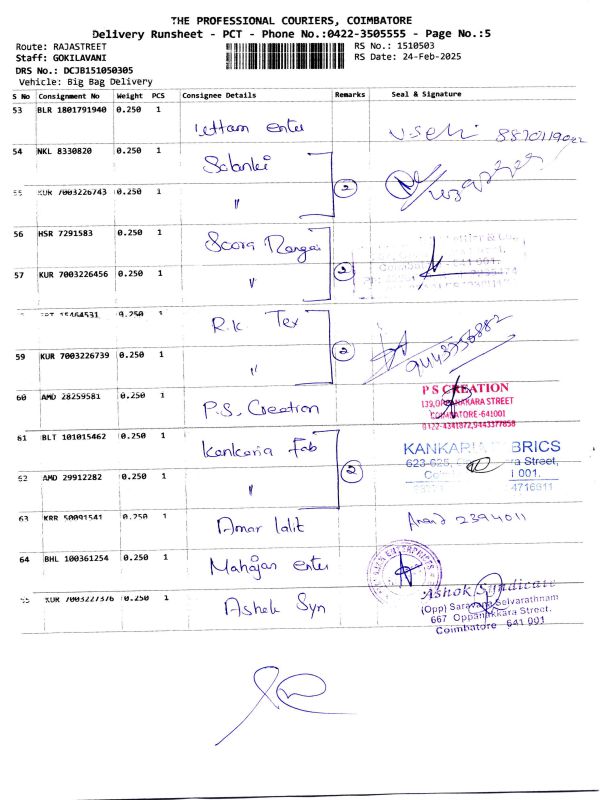 THE PROFESSIONAL COURIERS, COIMBATORE
Delivery Runsheet - PCT - Phone No.:0422-3505555 - Page No.:5
Route: RAJASTREET RS No.: 1510503
Staff: GOKILAVANI RS Date: 24-Feb-2025
DRS No.: DCJB151050305
Vehicle: Big Bag Delivery
S No Consignment No Weight PCS Consignee Details Remarks Seal & Signature
53 BLR 1801791940 0.250 1 enter
54 NKL 8330820 0.250 1 Solanki
55 KUR 7003226743 0.250 1 〃 2
56 HSR 7291583 0.250 1
57 KUR 7003226456 0.250 1 〃 2 641 001
15464531 0.250 1 R.K Tex
59 KUR 7003226739 0.250 1 〃 2 9443756882
60 AMD 28259581 0.250 1 P.S. Creation P S CREATION
139, OPPANAKARA STREET
COIMBATORE-641001
0422-4341872, 9443377858
61 BLT 101015462 0.250 1 Kankaria Fab KANKARI BRICS
623-625, ra Street,
62 AMD 29912282 0.250 1 〃 2 1 001.
4716611
63 KRR 50091541 0.250 1 Amar lalit Anand 2394011
64 BHL 100361254 0.250 1 Mahajan enter
KUR 7003227376 0.250 1 Ashok Syn Ashok Syndicate
(Opp) Saravana Selvarathnam
667 Oppanakkara Street.
Coimbatore 641 001